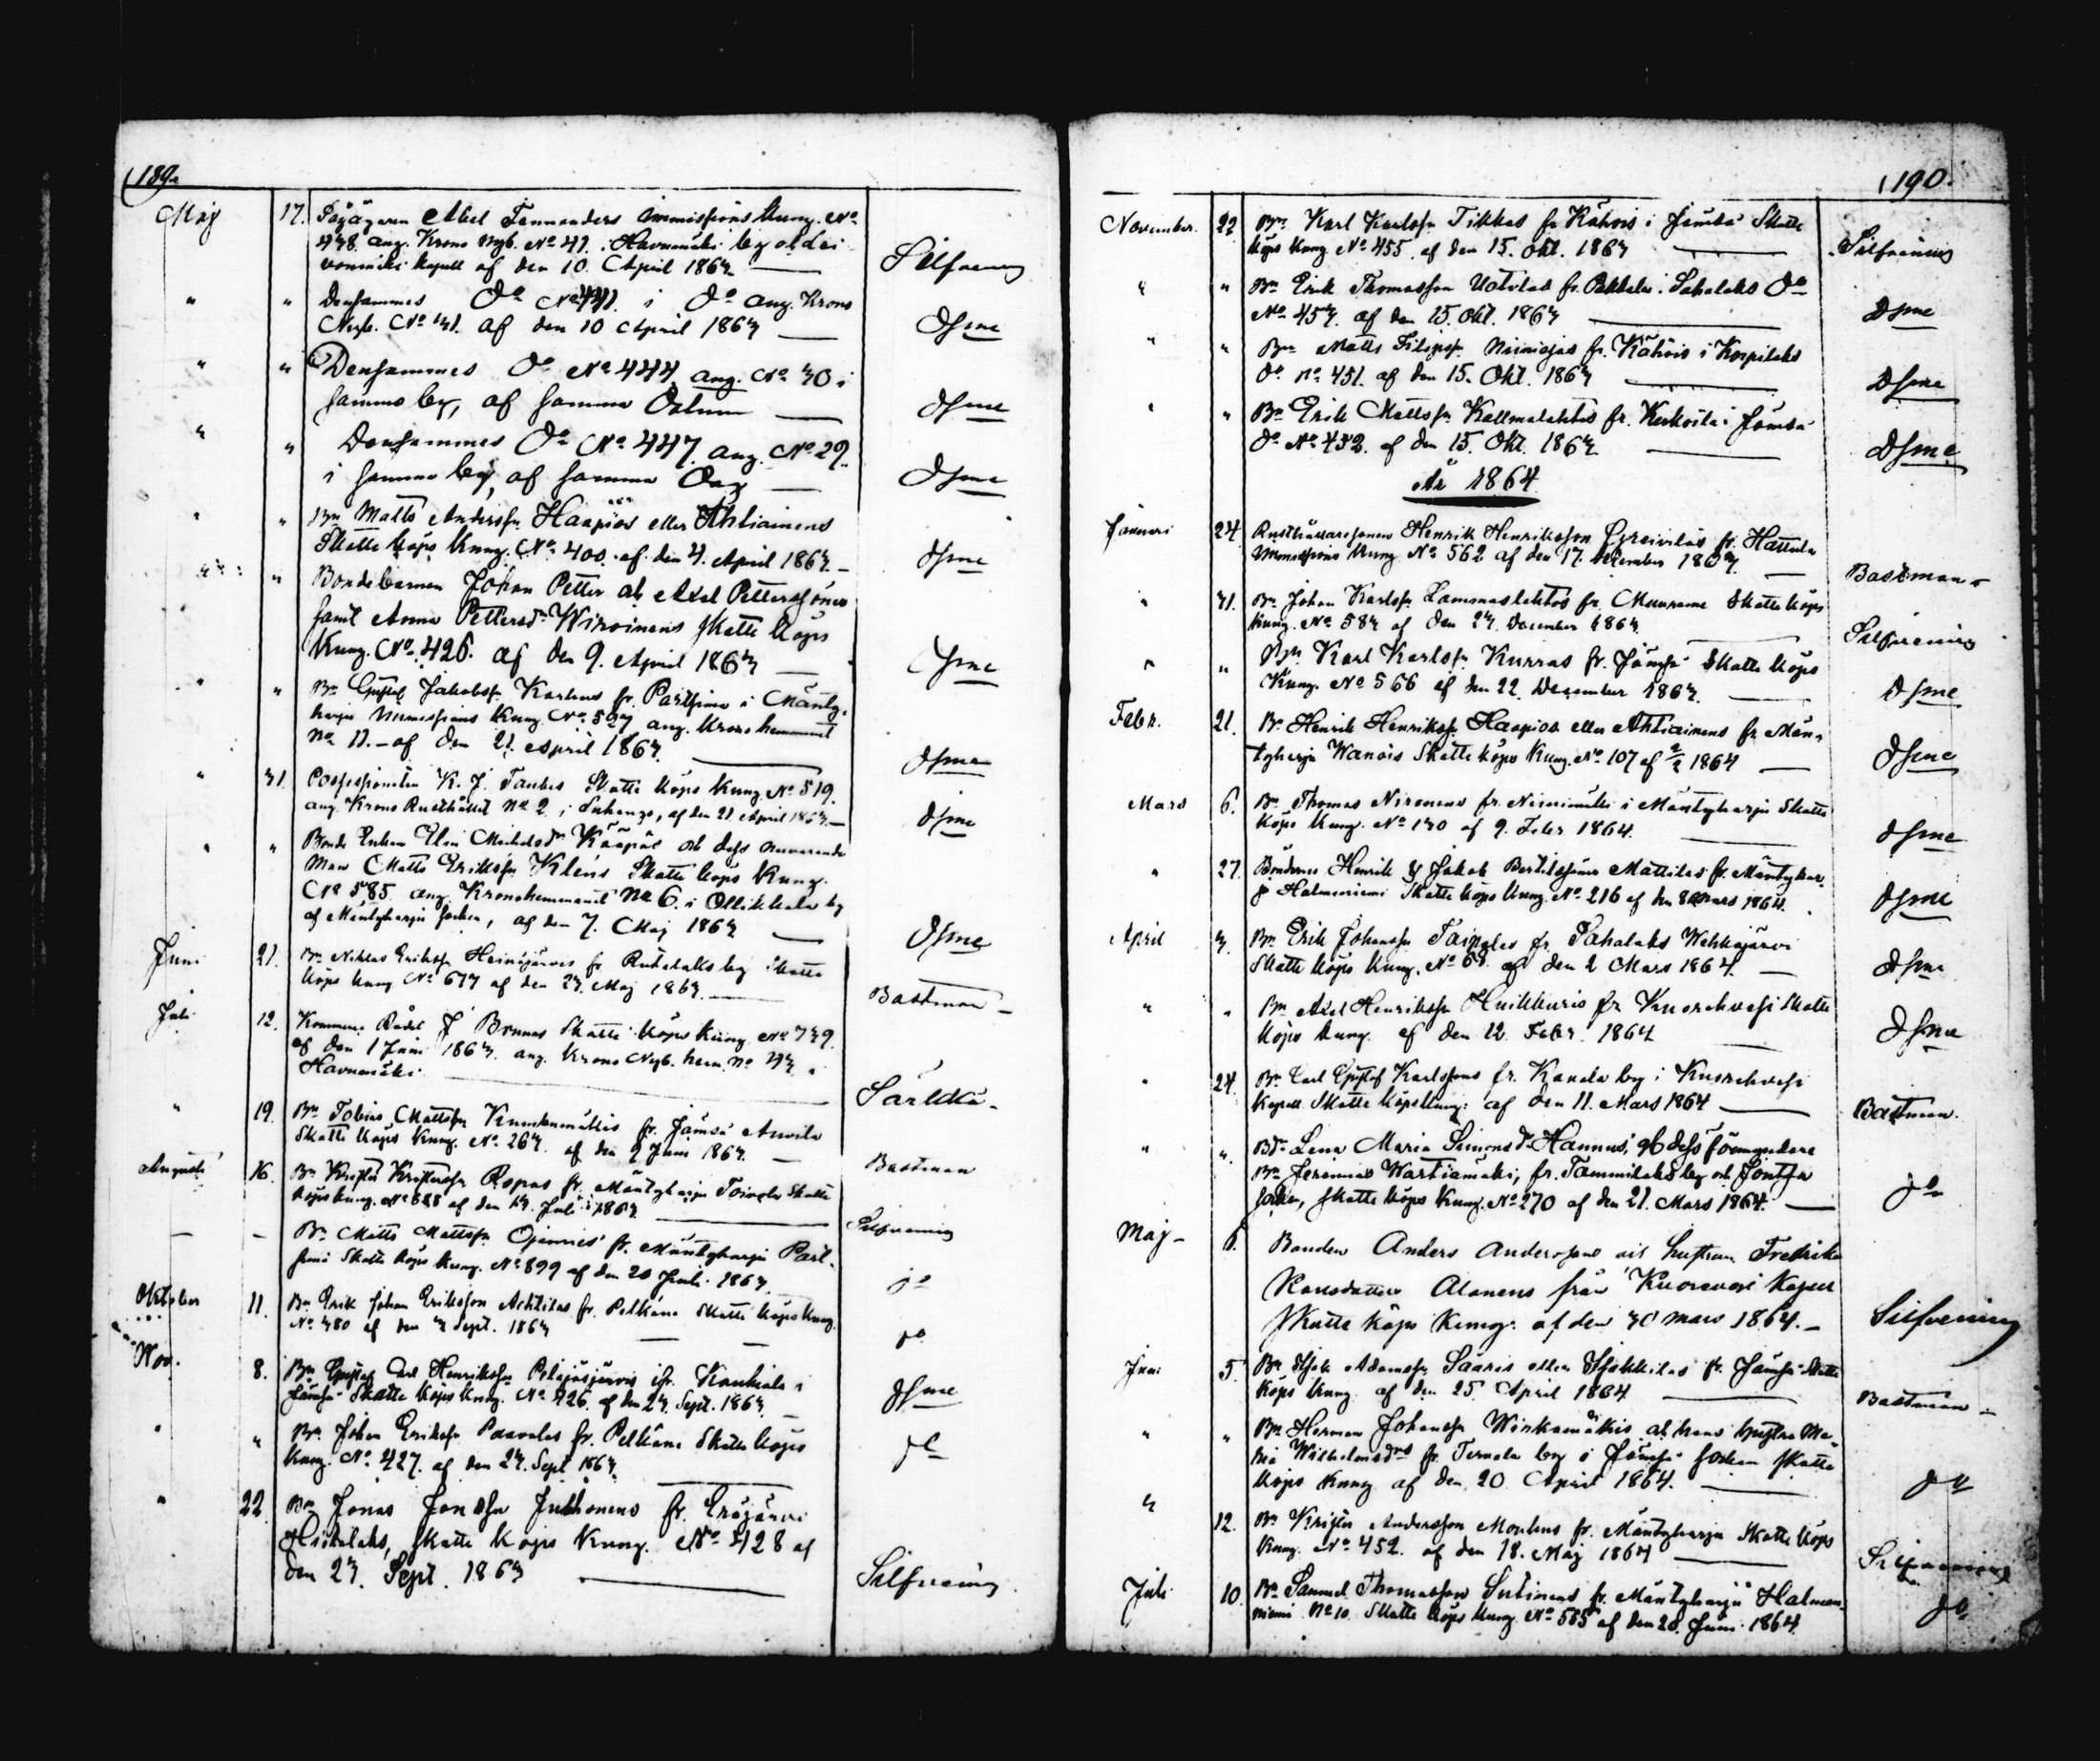 189.
Maj 17. Possessionaren Abel Tennanders Immissions Kung. No
448. ang. Krono Nyb. No 41. Havumäki by
kapell af den 10. April 1863. Silfvenius
" " Densammes Do No 441. i Do ang. Krono
Nyb. No 31. af den 10 April 1863 Dsme
" " Densammes Do No 444 ang. No 30 i
samma by, af samma Datum Dsme
" " Densammes Do No 447. ang. No 29.
i samma by, af samma Dag Dsme
" " Bn Matts Anderssn Haapios eller Ahtiainens
Skatte Köps Kung. No 400. af den 4. April 1863. Dsme
" " Bondebarnen Johan Petter och Axel Petterssöners
samt Anna Pettersdr Wiroinens skatte Köps
Kung. No 426. af den 9. April 1863 Dsme
" " Bn Gustaf Jakobssn Karlens fr. Partsima i Mänty-
harju Immissions Kung. No 527 ang. Krono hemmanet
No 11. af den 21. April 1863. Dsme
" 31. Possessionaten K. J. Taubes Skatte köps Kung. No 519.
ang. Krono Rusthållet No 2. i , af den 21 April 1863. Dsme
" " Bonde Enkan Elin Michelsdr Kääpäs och dess nuvarande
Man Matts Erikssn Kleins Skatte köps Kung.
No 585. ang. Kronohemmanet No 6. i Ollikkala by
af Mäntyharju socken, af den 7. Maj 1863. Dsme
Juni 21. Bn Niklas Erikssn Heinijärvis fr. by Skatte
köps Kung No 677 af den 23. Maj 1863. Bastman
Juli 12. Kommerse Rådet J Brunns Skatte köps Kung. No 739.
af den 1 Juni 1863. ang. Krono Nyb. hem. No 43. i
Havumäki Särkkä
" 19. Bn Tobias Mattssn fr. Jämsä Auvila
Skatte köps Kung. No 263. af den 9 Juni 1863. Bastman
Augusti 16. Bn Krister Kristerssn Ropas fr. Mäntyharju Toivola Skatte
köps Kung. No 828 af den 13. Juli 1863. Silfvenius
— — Bn Matts Mattssn Ojamies fr. Mäntyharju Pärt-
simä Skatte köps Kung. No 899 af den 20 Juli. 1863. do
Oktober 11. Bn Erik Johan Eriksson Achtilas fr. Pelkäne Skatte köps Kung.
No 380 af den 3 Sept. 1863 do
Nov. 8. Bn Gustaf Carl Henrikssn fr. Kankiala i
Jämsä Skatte köps Kung. No 426. af den 23. Sept. 1863. Dsme
" " Bn Johan Erikssn Paavolas fr. Pelkäne Skatte köps
Kung. No 427. af den 23. Sept 1863. do
" 22. Bn Jonas Jonssn Juthonens fr. Eräjärvi
skatte köps Kung. No 428 af
den 23. Sept. 1863 Silfvenius
190.
November. 22. Bn Karl Karlssn Tikkas fr Kähois i Jämsä Skatte
köps Kung No 455. af den 15. Okt. 1863 Silfvenius
" " Bn Erik Thomasson Uotilas fr. Pakkala i Sahalaks Do
No 453. af den 15. Okt. 1863 Dsme
" " Bn Matts Filipssn Niiniojas fr. Kähois i Korpilaks
do No 451. af den 15. Okt. 1863 Dsme
" " Bn Erik Mattssn Kallmalahtis fr. Kerkoila i Jämsä
do No 452. af den 15. Okt. 1863. Dsme
År 1864
Januari 24. Rusthållaresonen Henrik Henriksson fr. Hattula
Immissions Kung No 562 af den 17. December 1863. Bastman
" 31. Bn Johan Karlssn Lammaslahtis fr. Muurame Skatte köps
Kung. No 583 af den 23. December 1863. Silfvenius
" " Bn Karl Karlssn Kurras fr. Jämsä Skatte köps
Kung. No 566 af den 22. December 1863. Dsme
Febr. 21. Bn Henrik Henrikssn Haapios eller Ahtiainens fr Män-
tyharju Wanois Skatte köps Kung. No 107 af 2/2 1864 Dsme
Mars 6. Bn Thomas Nironens fr. Nirimäki i Mäntyharju Skatte
köps Kung. No 130 af 9. Febr 1864. Dsme
" 27. Bönderne Henrik & Jakob Bertilssöners Mattilas fr. Mäntyhar-
ju Halmeniemi Skatte köps Kung. No 216 af den 8 Mars 1864. Dsme
April 3. Bn Erik Johanssn Taipales fr. Sahalaks Wehkajärvi
Skatte köps Kung. No 63. af den 2 Mars 1864. Dsme
" " Bn Axel Henrikssn Huikkuris fr Kuorehvesi Skatte
köps Kung. af den 12. Febr. 1864 Dsme
" 24. Bn Carl Gustaf Karlssons fr. Kanala by i Kuorehvesi
Kapell Skatte köps Kung. af den 11. Mars 1864 Bastman.
" " Bdr Lena Maria Simonsdr Hannus, och dess förmyndare
Bn Jeremias Wartiamäki, fr. Tammilaks by och Jontsa
socken, skatte köps Kung. No 270 af den 21. Mars 1864. do
Maj 8. Bonden Anders Anderssons och hustrun Fredrika
Alanens från Kuorevesi Kapell
Skatte köps Kung. af den 30 mars 1864. Silfvenius
Juni 5. Bn Isak Adamssn Saaris eller Isakkilas fr. Jämsä Skatte
köps Kung. af den 25 April 1864 Bastman
" " Bn Herman Johanssn Wirkamäkis och hans hustru Ma-
ria Wilhelmsdrs fr. Ternala by i Jämsä socken skatte
köps Kung af den 20 April 1864. do
" 12. Bn Krister Andersson Moukens fr. Mäntyharju Skatte köps
Kung. No 452. af den 18. Maj 1864 Silfvenius
Juli 10. Bn Samuel Thomasson Sutinens fr. Mäntyharju Halmen-
niemi No 10 Skatte köps Kung. No 555 af den 20. Juni 1864. do